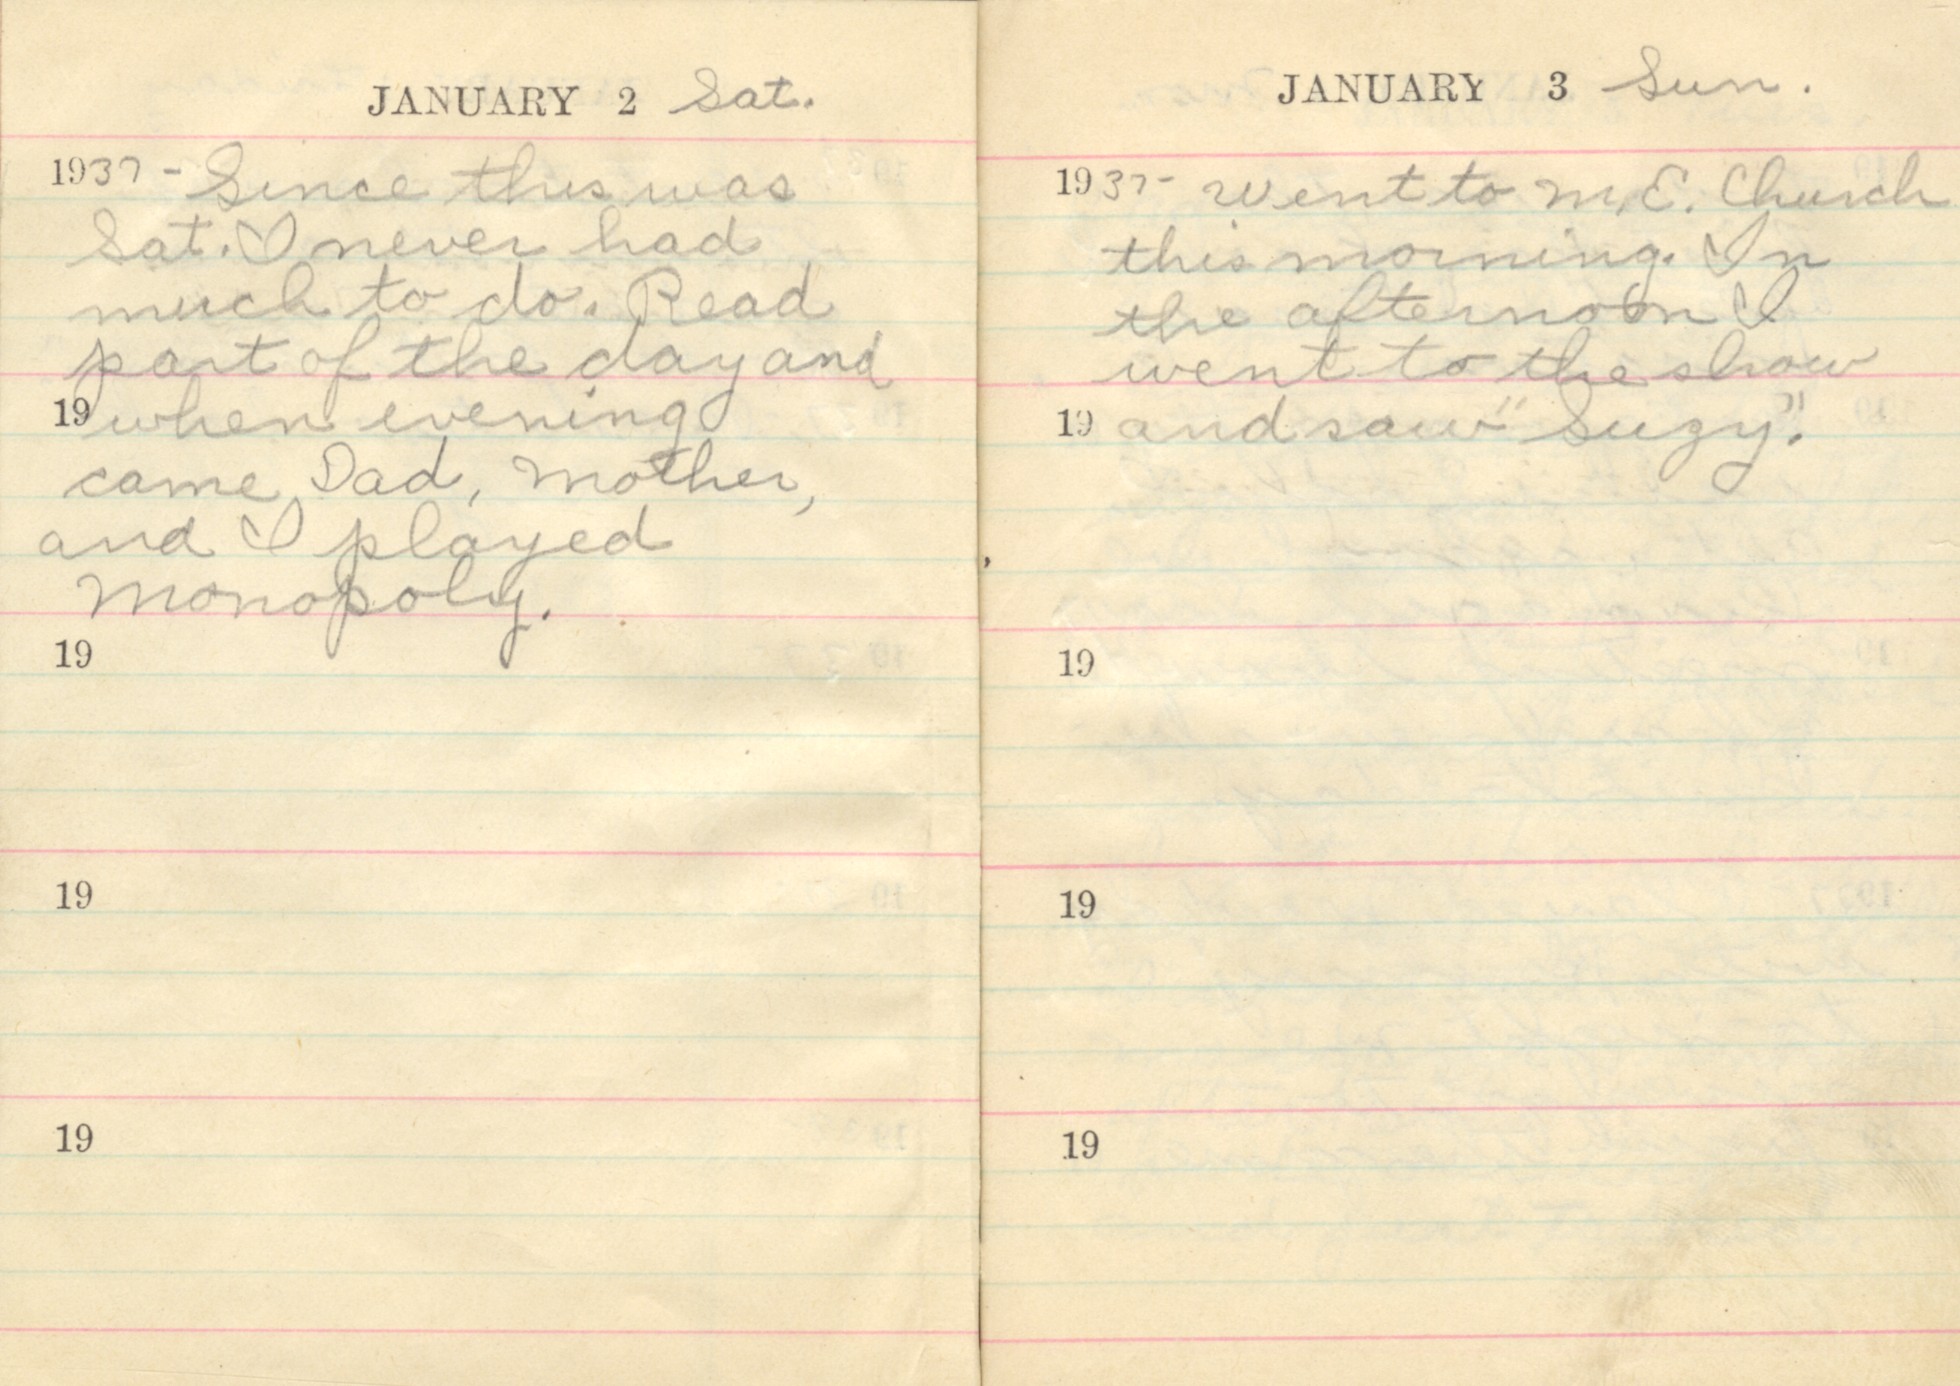 JANUARY 2 Sat.
1937 - Since this was
Sat. I never had
much to do. Read
part of the day and
19 when evening
came Dad, Mother,
and I played
Monopoly.
19
19
19
JANUARY 3 Sun.
1937 - Went to M.E. Church
this morning. In
the afternoon I
went to the show
19 and saw "Suzy".
19
19
19